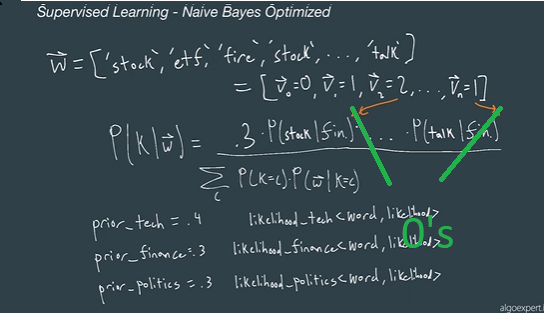 Supervised Learning - Naive Bayes Optimized
w⃗ = ['stock', 'etf', 'fire', 'stock', ..., 'talk']
= [v⃗₀=0, v⃗₁=1, v⃗₂=2, ..., v⃗ₙ=1]
P(K|w⃗) = .3 · P(stock|fin.)² ... · P(talk|fin.)¹
Σ P(K=c) · P(w⃗|K=c)
c
prior_tech = .4 likelihood_tech<word, likelihood>
prior_finance = .3 likelihood_finance<word, likelihood>
prior_politics = .3 likelihood_politics<word, likelihood>
0's
algoexpert.i